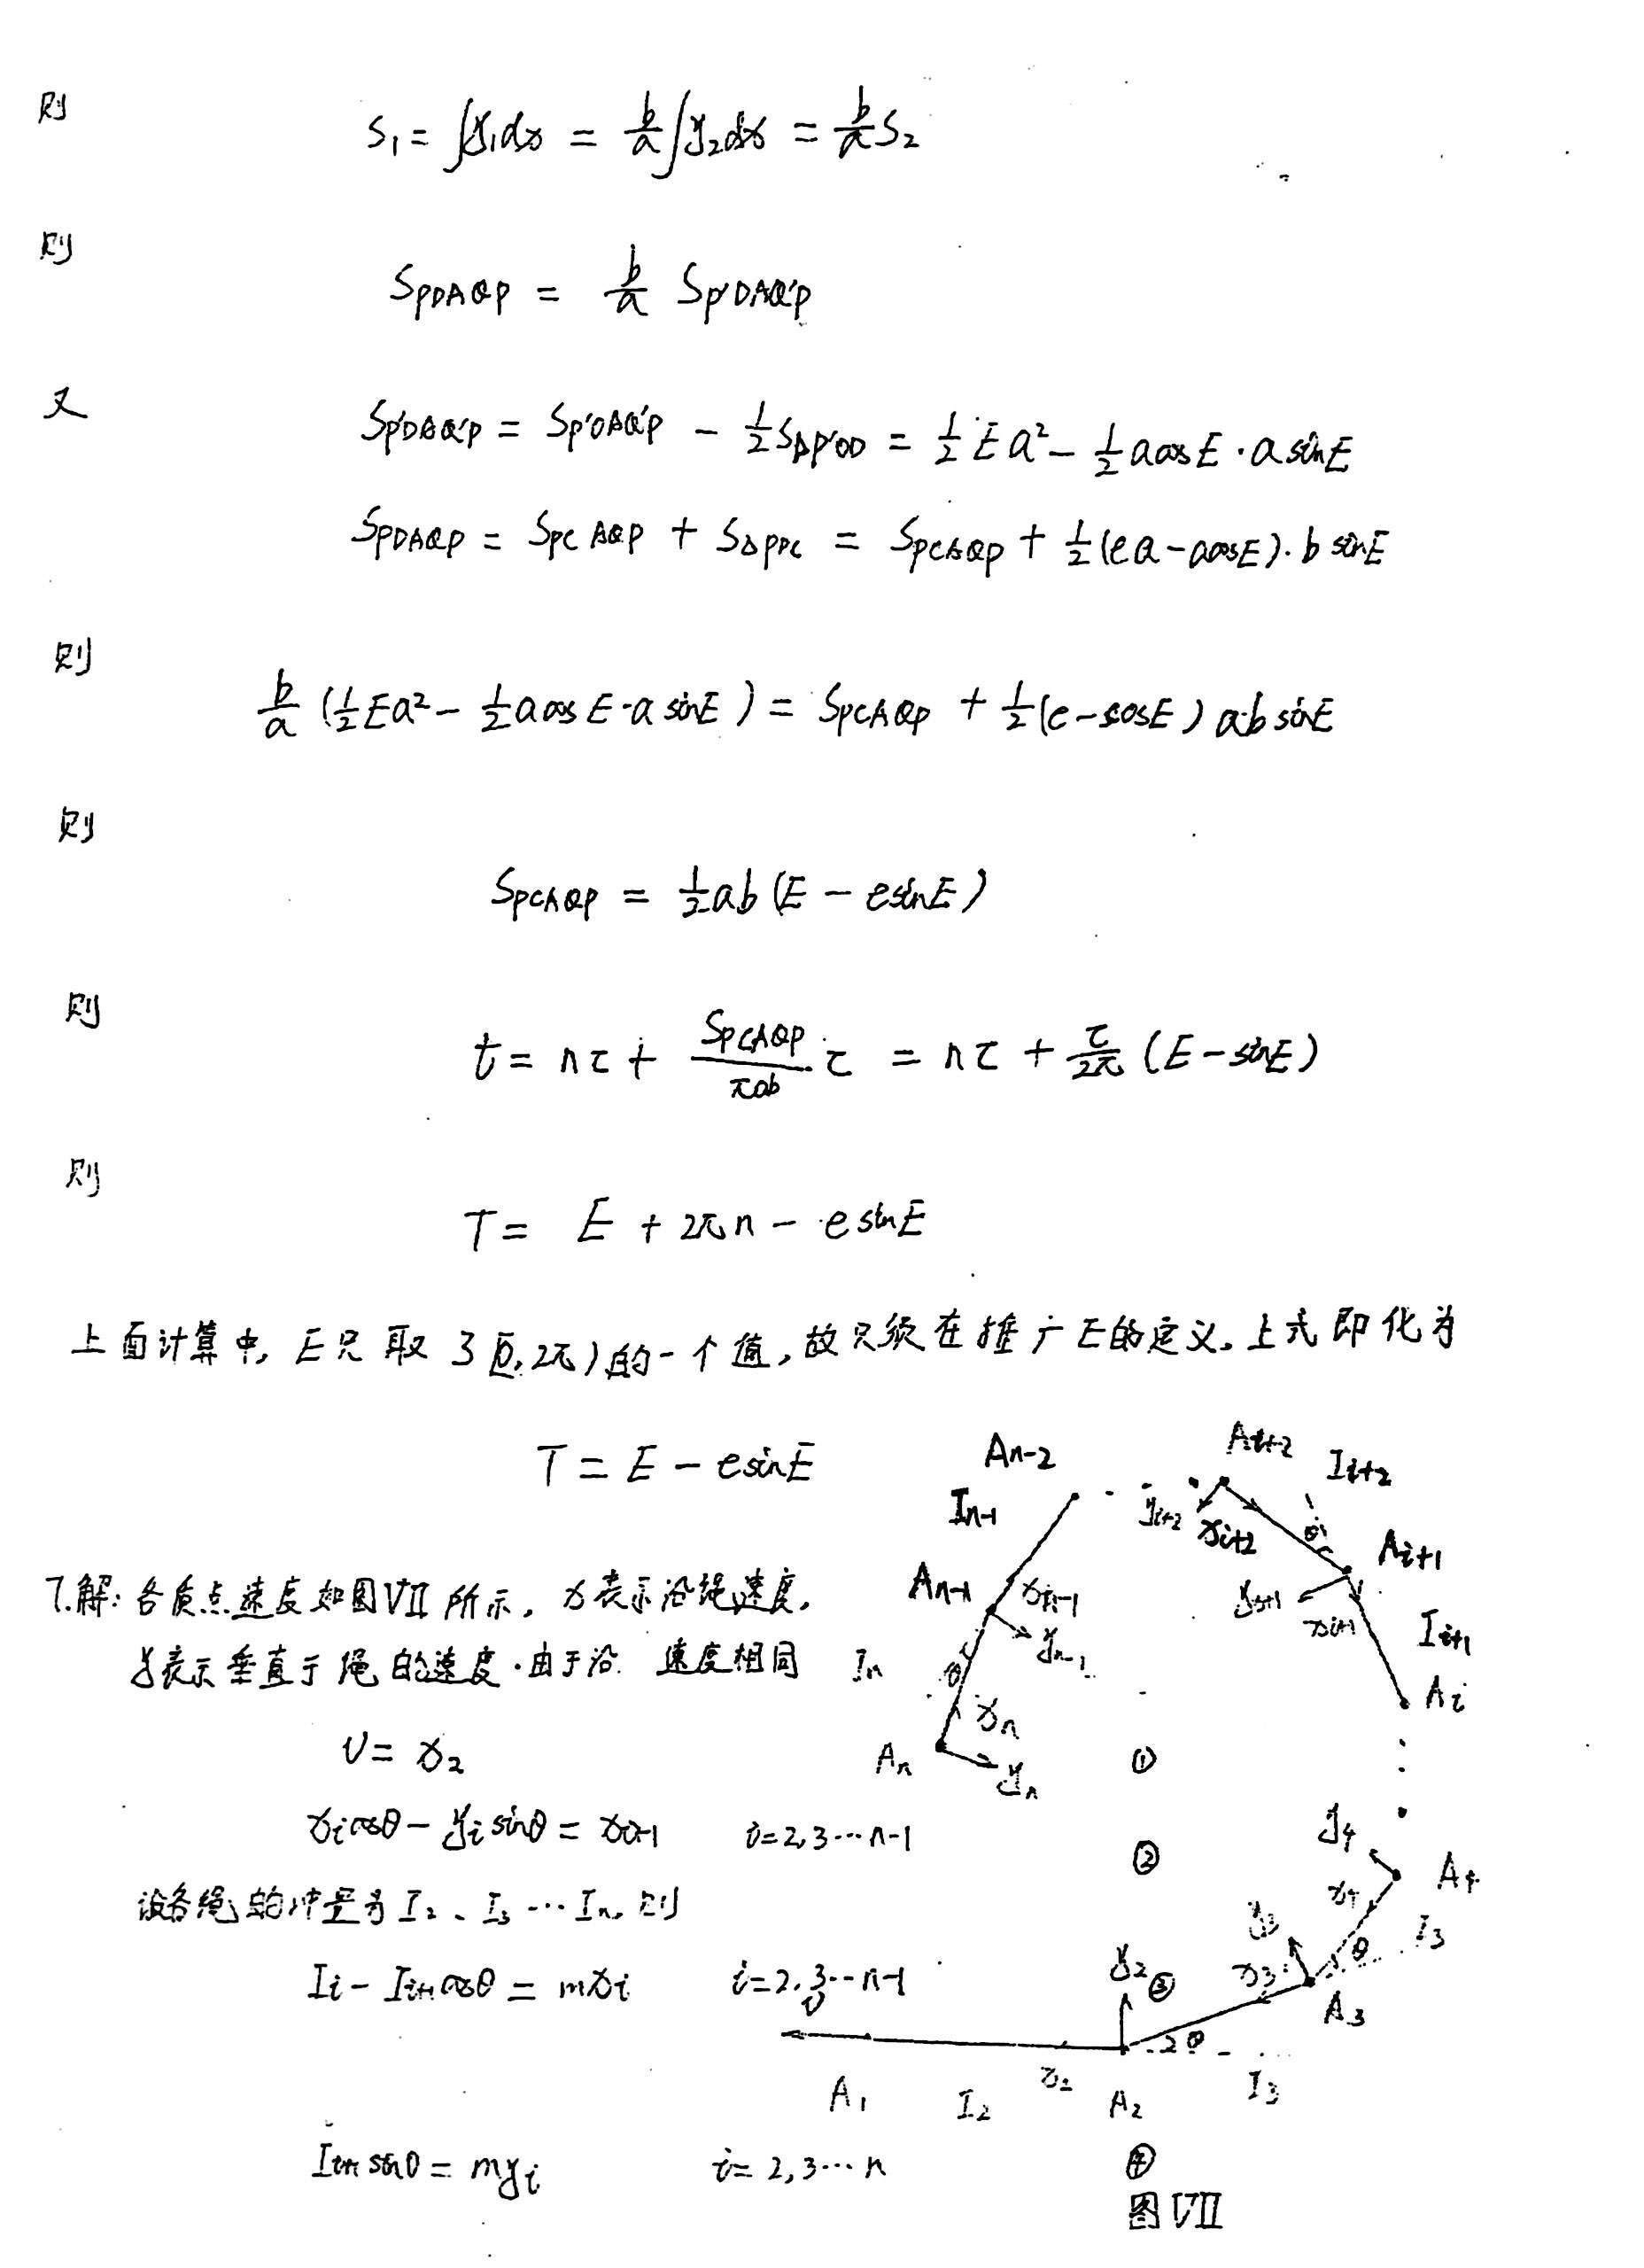 则
S₁ = ∫y₁dx = b/a ∫y₂dx = b/a S₂
则
S_PDAQP = b/a S_P'DAQ'P
又
S_P'DAQ'P = S_P'OAQ'P - 1/2 S_ΔP'OD = 1/2 E a² - 1/2 a cos E · a sin E
S_PDAQP = S_PCAQP + S_ΔPDC = S_PCAQP + 1/2 (ea - a cos E) · b sin E
则
b/a (1/2 E a² - 1/2 a cos E · a sin E) = S_PCAQP + 1/2 (e - cos E) ab sin E
则
S_PCAQP = 1/2 ab (E - e sin E)
则
t = nτ + S_PCAQP/πab · τ = nτ + τ/2π (E - sin E)
则
T = E + 2πn - e sin E
上面计算中, E只取了[0, 2π)的一个值, 故只须在推广E的定义。上式即化为
T = E - e sin E
7.解: 各质点速度如图VII所示, x表示沿绳速度,
y表示垂直于绳的速度. 由于沿 速度相同
v = x₂ ①
x_i cosθ - y_i sinθ = x_i+1 i = 2,3…n-1 ②
设各绳的冲量为 I₂、I₃…Iₙ, 则
I_i - I_i+1 cosθ = m x_i i = 2,3…n-1 ③
I_i+1 sinθ = m y_i i = 2,3…n ④
A_n-2 A_i+2 I_i+2
I_n-1 y_i+2 x_i+2 θ A_i+1
A_n-1 x_n-1 y_i+1 x_i+1 I_i+1
I_n θ y_n-1 A_i
x_n
A_n y_n
y₄ A₄
x₄ I₃
y₃ x₃ θ
y₂ A₃
v 2θ
A₁ I₂ x₂ A₂ I₃
图VII